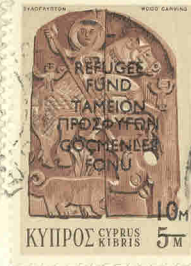 ΞΥΛΟΓΛΥΠΤΟΝ WOOD CARVING
REFUGEE
FUND
ΤΑΜΕΙΟΝ
ΠΡΟΣΦΥΓΩΝ
GÖÇMENLER
FONU
10M
ΚΥΠΡΟΣ CYPRUS KIBRIS 5M